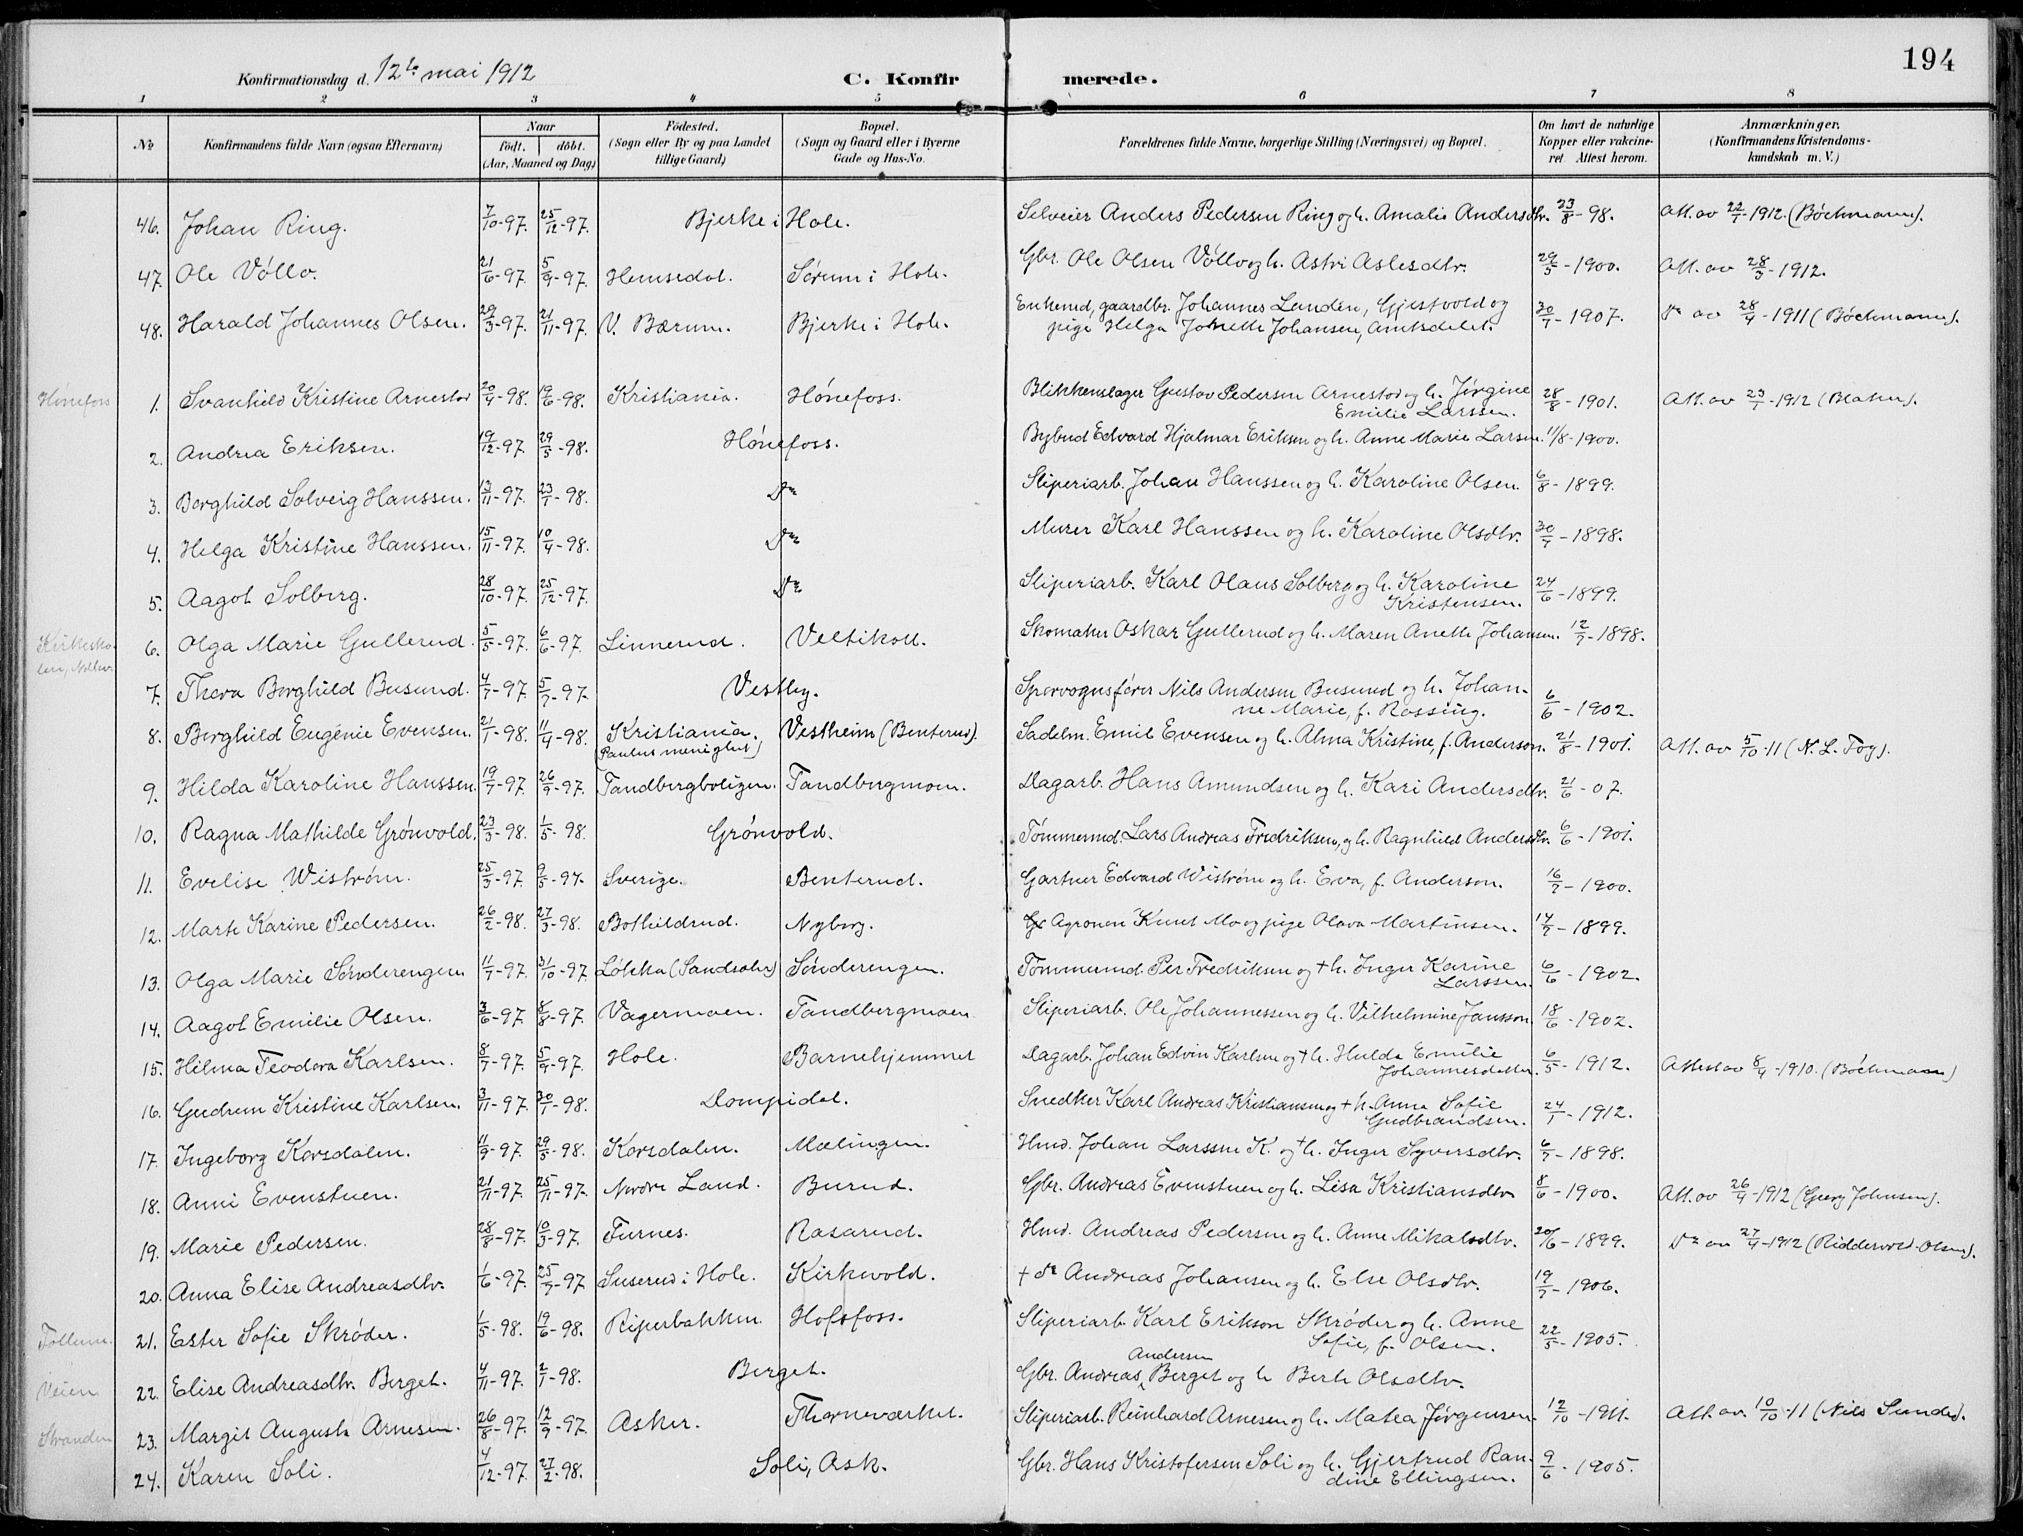 194
Konfirmationsdag d. 12te mai 1912 C. Konfirmerede.
1 2 3 4 5 6 7 8
No Konfirmandens fulde Navn (ogsaa Efternavn) Naar født. døbt. (Aar, Maaned og Dag) Fødested. (Sogn eller By og paa Landet tillige Gaard) Bopæl. (Sogn og Gaard eller i Byerne Gade og Hus-No. Forældrenes fulde Navne, borgerlige Stilling (Næringsvei) og Bopæl. Om havt de naturlige Kopper eller vakcineret. Attest herom. Anmærkninger. (Konfirmandens Kristendomskundskab m. V.)
46. Johan Ring. 7/10-97. 25/12-97. Bjerke i Hole. Selveier Anders Pedersen Ring og h. Amalie Andersdtr. 23/8-98. Att. av 22/1-1912. (Bøchmann).
47. Ole Vøllo. 21/6-97. 5/9-97. Hemsedal. Sørum i Hole. Gbr. Ole Olsen Vøllo og h. Astri Aslesdtr. 29/5-1900. Att. av 28/3-1912.
48. Harald Johannes Olsen. 29/3-97. 21/11-97. V. Bærum. Bjerke i Hole. Enkemd, gaardbr. Johannes Lunden, Gjestvold og
pige Helga Jonette Johansen, Amtsdalet. 30/7-1907. do av 28/4-1911 (Bøchmann).
Hønefoss 1. Svanhild Kristine Arnestad 20/4-98. 19/6-98. Kristiania. Hønefoss. Blikkenslager Gustav Pedersen Arnestad og h. Jørgine
Emilie Larssen. 28/8-1901. Att. av 23/1-1912
2. Andrea Eriksen. 19/12-97. 29/5-98. Hønefoss. Bybud Edvard Hjalmar Eriksen og h. Anne Marie Larsen. 11/8-1900.
3. Borghild Solveig Hanssen. 13/11-97. 23/1-98. do Sliperiarb. Johan Hanssen og h. Karoline Olsen. 6/8-1899.
4. Helga Kristine Hanssen. 15/11-97. 10/4-98. do Murer Karl Hanssen og h. Karoline Olsdtr. 30/7-1898.
5. Aagot Solberg. 28/10-97. 25/12-97. do Sliperiarb. Karl Olaus Solberg og h. Karoline
Kristensen. 24/6-1899.
Kirkeskolen 6. Olga Marie Gullerud. 5/5-97. 6/6-97. Linnerud. Veltikoll. Skomaker Oskar Gullerud og h. Maren Anette Johansen. 12/7-1898.
7. Thora Borghild Busund. 4/7-97. 5/7-97. Vestby. Sporvognsfører Nils Andersen Busund og h. Johan-
ne Marie, f. Rossing. 6/6-1902.
8. Borghild Eugénie Evensen. 21/1-98. 11/4-98. Kristiania. (Paulus menighet) Vestheim (Benterud). Sadelm. Emil Evensen og h. Alma Kristine, f. Anderson. 21/8-1901. Att. av 5/10-11
9. Hilda Karoline Hanssen. 19/7-97. 26/9-97. Tandbergboligen. Tandbergmoen. Dagarb. Hans Amundsen og h. Kari Andersdtr. 21/6-07.
10. Ragna Mathilde Grønvold. 23/3-98. 1/5-98. Grønvold. Tømmermd. Lars Andreas Fredriksen, og h. Ragnhild Andersdtr. 6/6-1901.
11. Evelise Wistrøm. 25/3-97. 9/5-97. Sverige. Benterud. Gartner Edvard Wistrøm og h. Eva, f. Anderson. 16/7-1900.
12. Marte Karine Pedersen. 26/2-98. 27/3-98. Bothildrud. Nyborg. Agronom Knut Mo og pige Olava Martinsen. 14/7-1899.
13. Olga Marie Sønderengen. 11/7-97. 31/10-97. Løkka (Sandsaker) Sønderengen. Tømmermd. Per Fredriksen og + h. Inger Karine
Larssen. 6/6-1902.
14. Aagot Emilie Olsen. 3/6-97. 8/8-97. Vagermoen. Tandbergmoen Sliperiarb. Ole Johannessen og h. Vilhelmine Jansson. 18/6-1902.
15. Hilma Teodora Karlsen. 8/7-97. 5/9-97. Hole. Barnehjemmet Dagarb. Johan Edvin Karlsen og + h. Hulda Emilie
Johannesdatter. 6/5-1912. Attest av 8/4-1910. (Bøchmann)
16. Gudrun Kristine Karlsen. 3/11-97. 30/1-98. Dompidal. Snedker Karl Andreas Kristiansen og + h. Anna Sofie
Gudbrandsen. 24/1-1912.
17. Ingeborg Korsdalen. 11/9-97. 29/5-98. Korsdalen. Mælingen. Hmd. Johan Larssen K. og + h. Inger Syversdtr. 6/7-1898.
18. Anni Evenstuen. 21/11-97. 25/11-97. Nordre Land. Burud. Gbr. Andreas Evenstuen og h. Lisa Kristiansdtr. 8/6-1900. Att. av 26/4-1912 (Georg Johnsen).
19. Marie Pedersen. 28/8-97. 10/3-97. Furnes. Rasarud. Hmd. Andreas Pedersen og h. Anne Mikalsdtr. 20/6-1899. do av 27/4-1912 (Riddervold-Olsen).
20. Anna Elise Andreasdtr. 1/6-97. 25/7-97. Suserud i Hole. Kirkevold. + do Andreas Johansen og h. Else Olsdtr. 19/7-1906.
Follum. 21. Ester Sofie Skrøder. 1/5-98. 19/6-98. Riperbakken Hofsfoss. Sliperiarb. Karl Erikson Skrøder og h. Anne
Sofie, f. Olsen. 22/5-1905.
Veien 22. Elise Andreasdtr. Berget. 4/11-97. 2/1-98. Berget. Gbr. Andreas Andersen Berget og h. Berte Olsdtr.
Stranden 23. Margit Augusta Arnesen. 26/8-97. 12/9-97. Asker. Thorneværket. Sliperiarb. Reinhard Arnesen og h. Matea Jørgensen. 12/10-1911. Att. av. 10/10-11 (Nils Sunde).
24. Karen Soli. 4/12-97. 27/2-98. Soli, Ask. Gbr. Hans Kristofersen Soli og h. Gjertrud Ran-
dine Ellingsen. 9/6-1905.